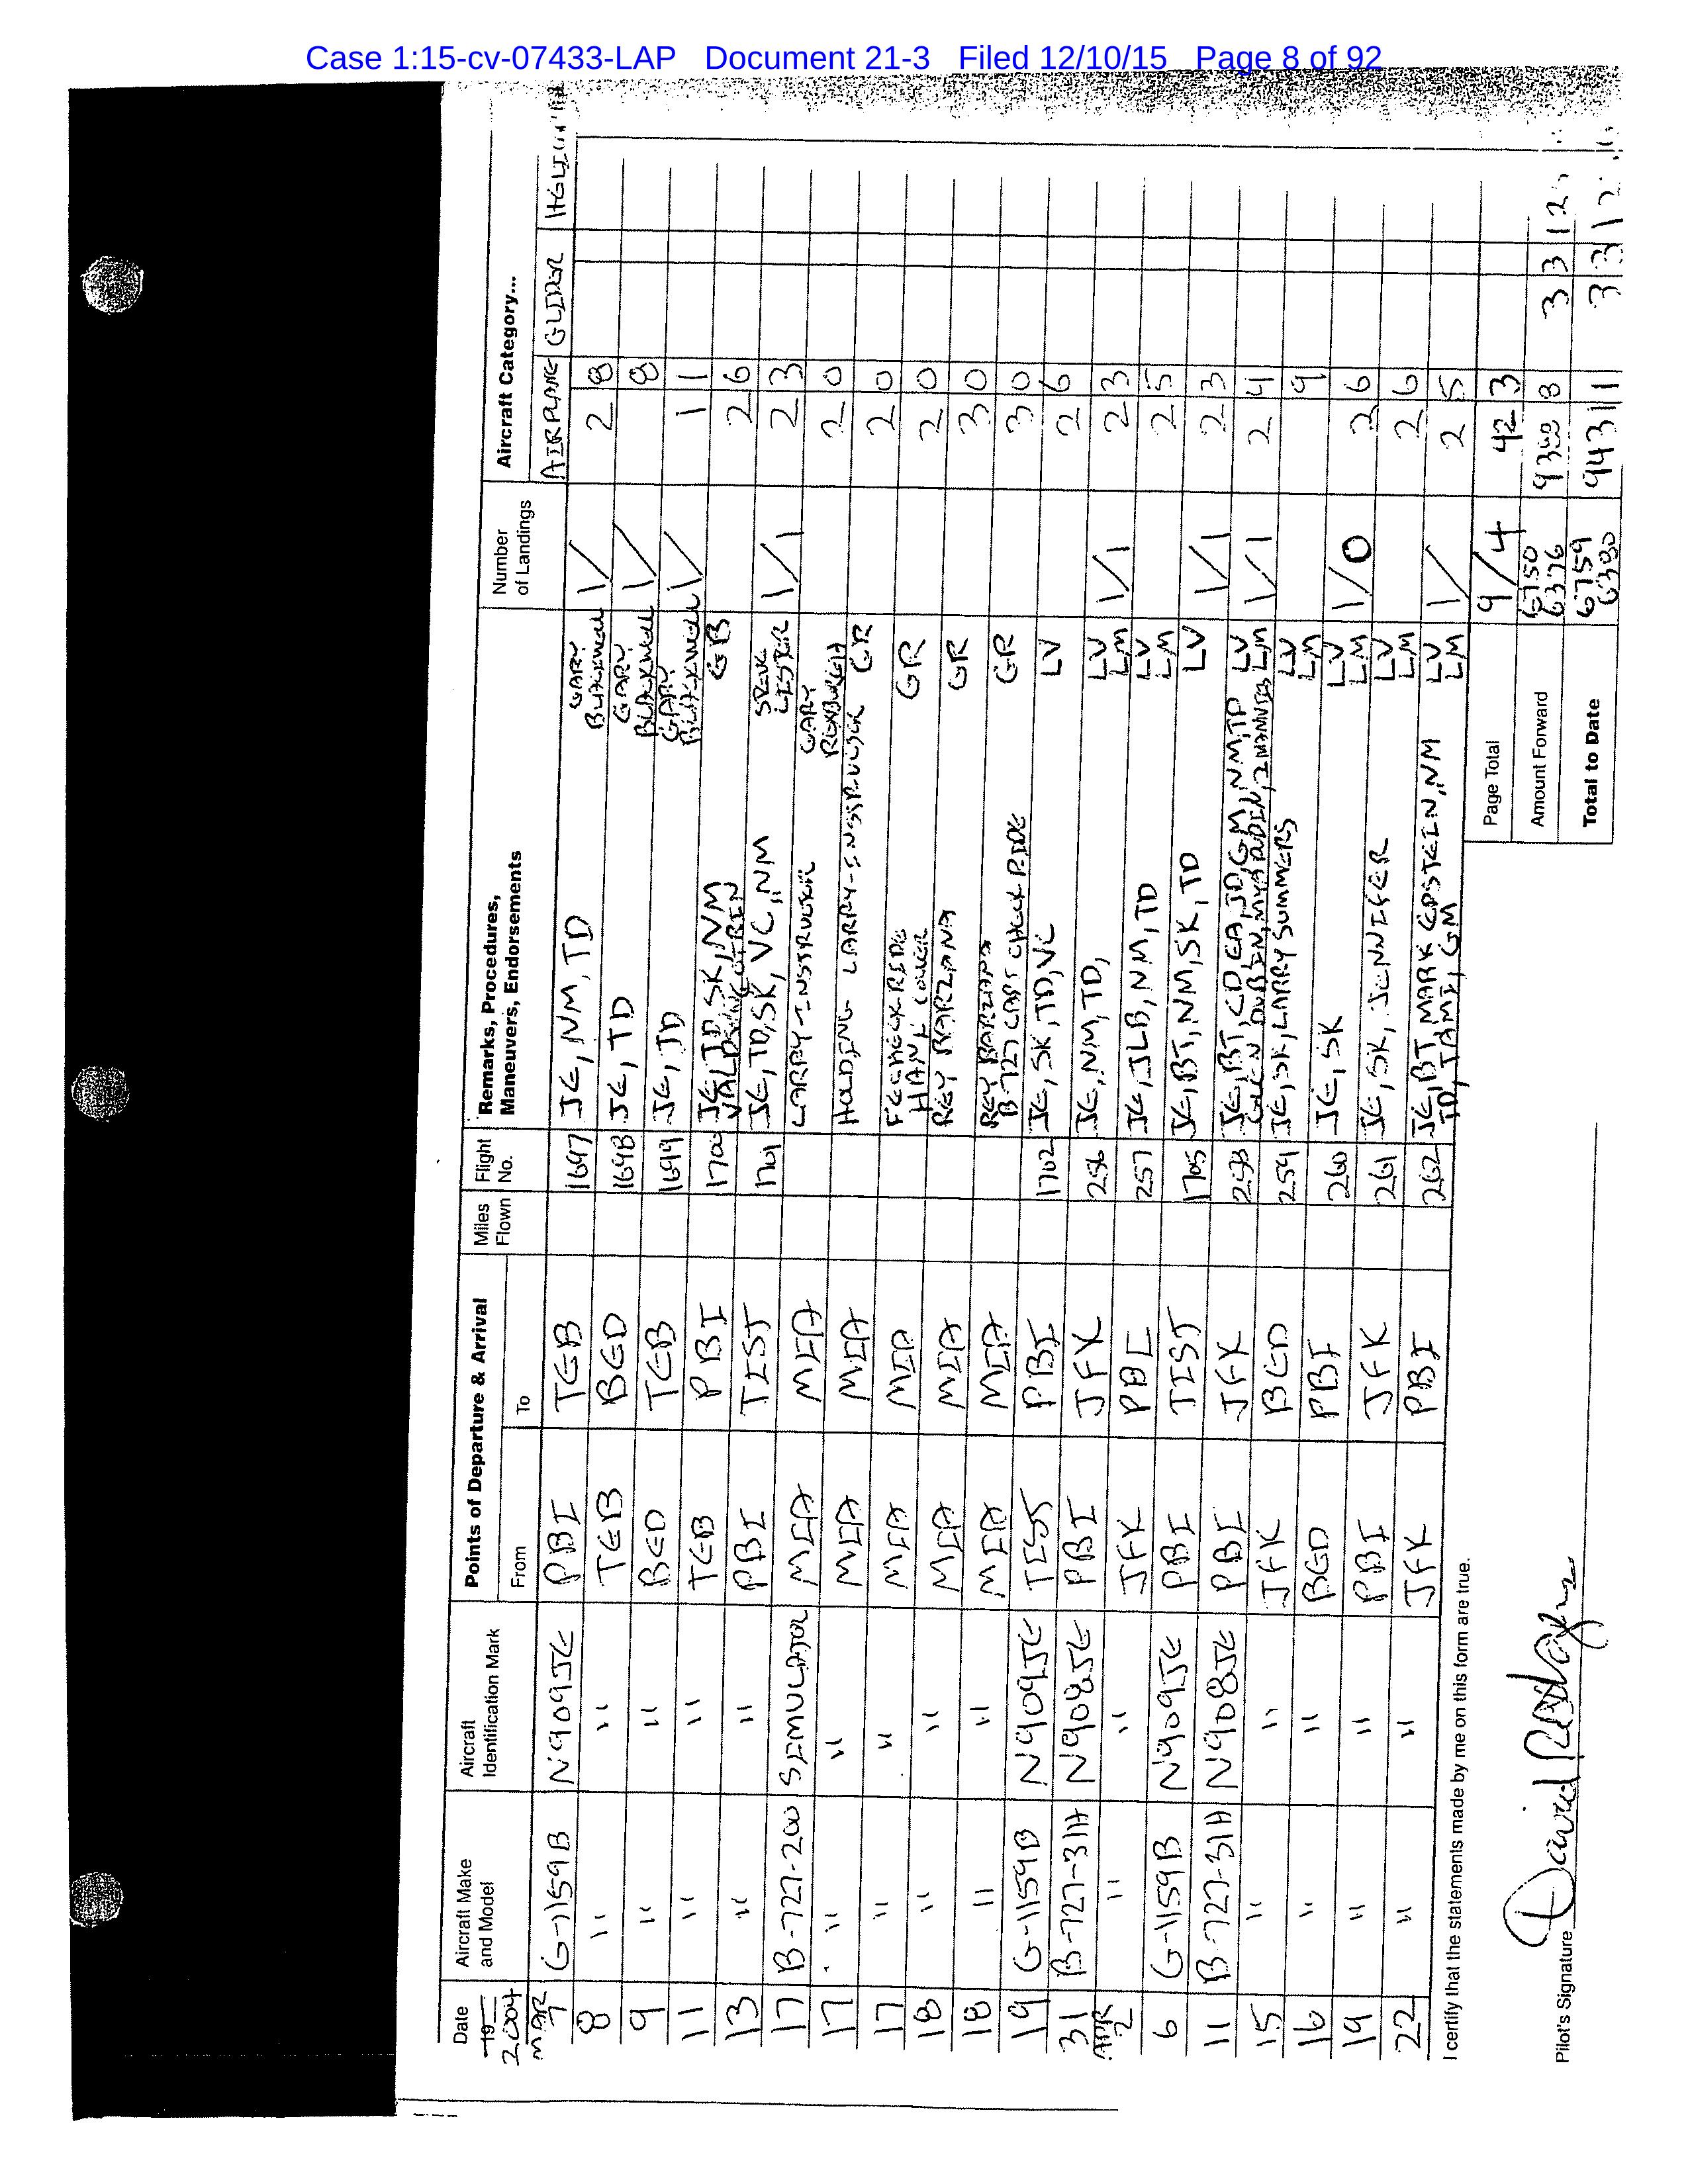 Case 1:15-cv-07433-LAP Document 21-3 Filed 12/10/15 Page 8 of 92
Date 19 2004 Aircraft Make and Model Aircraft Identification Mark Points of Departure & Arrival From To Miles Flown Flight No. Remarks, Procedures, Maneuvers, Endorsements Number of Landings Aircraft Category... AIRPLANE GLIDER
MAR 7 G-1159B N909JE PBI TEB 1697 JE, NM, TD GARY BLACKWELL 1/ 2 8
8 " " TEB BED 1698 JE, TD GARY BLACKWELL 1/ 8
9 " " BED TEB 1699 JE, TD GARY BLACKWELL 1/ 1 1
11 " " TEB PBI 1700 JE, TD, SK, NM GB 2 6
13 " " PBI TIST 1701 JE, TD, SK, VC, NM LESTER 1/1 2 3
17 B-727-200 SIMULATOR MIA MIA LARRY-INSTRUCTOR GARY ROXBURGH 2 0
17 " " MIA MIA HOLDING LARRY-INSTRUCTOR GR 2 0
17 " " MIA MIA FE CHECKRIDE GR 2 0
18 " " MIA MIA REY BARZANA GR 3 0
18 " " MIA MIA REY BARZANA B-727 CAPT CHECK RIDE GR 3 0
19 G-1159B N909JE TIST PBI 1702 JE, SK, TD, VC LV 2 6
31 B-727-31H N908JE PBI JFK 256 JE, NM, TD, LV LM 1/1 2 3
APR 2 " " JFK PBI 257 JE, JLB, NM, TD LV LM 2 5
6 G-1159B N909JE PBI TIST 1705 JE, BT, NM, SK, TD LV 1/1 2 3
11 B-727-31H N908JE PBI JFK 258 JE, BT, CD, EA, JD, GM, NM, TP GLEN DUBIN, 2 NANNIES LV LM 1/1 2 4
15 " " JFK BED 259 JE, SK, LARRY SUMMERS LV LM 9
16 " " BED PBI 260 JE, SK LV LM 1/0 2 6
19 " " PBI JFK 261 JE, SK, JENNIFER LV LM 2 6
22 " " JFK PBI 262 JE, BT, MARK EPSTEIN, NM TD, JAMI, GM LV LM 1/ 2 5
I certify that the statements made by me on this form are true.
Page Total 9/4 42 3
Amount Forward 6750 6376 9388 8 3 3
Total to Date 6759 6380 9431 1 3 3
Pilot's Signature David Rodgers